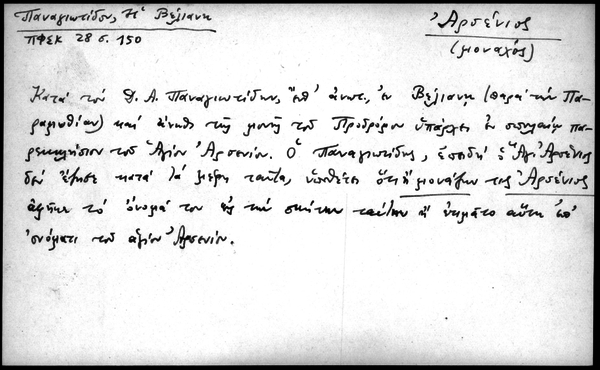 Παναγιωτίδου, Ἡ Βέλιανη
ΠΦΕΚ 28 σ. 150
Ἀρσένιος
(μοναχός)
Κατὰ τὸν Δ. Α. Παναγιωτίδην, ἔνθ' ἀνωτ., ἐν Βελιανῃ (παρὰ τὴν Πα-
ραμυθίαν) καὶ ἄνωθι τῆς μονῆς τοῦ Προδρόμου ὑπάρχει ἐν σπηλαίῳ πα-
ρεκκλήσιον τοῦ Ἁγίου Ἀρσενίου. Ὁ Παναγιωτίδης, ἐπειδὴ ὁ Ἅγ. Ἀρσένιος
δὲν ἔζησε κατὰ τὰ μέρη ταῦτα, ὑποθέτει ὅτι ἢ μονάζων τις Ἀρσένιος
ἀφῆκε τὸ ὄνομά του εἰς τὴν σκήτην ταύτην ἢ ἐτιμᾶτο αὕτη ἐπ'
ὀνόματι τοῦ ἁγίου Ἀρσενίου.